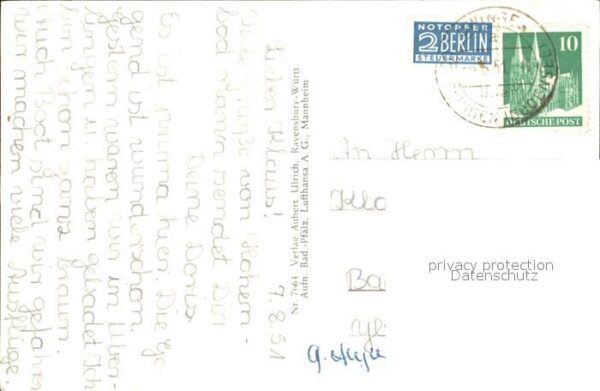 Lieber Klaus! 7.8.51
Viele Grüße von
sendet Dir
Deine Doris
Es ist prima hier. Die Ge-
gend ist wunderschön.
gestern waren wir in Über-
lingen u. haben gebadet. Ich
bin schon ganz braun.
Bad sind wir gefahren
wir machen viele Ausflüge.
Nr. 7664 Verlag Aubert Ulrich, Ravensburg-Württ
Aufn. Bad.-Pfälz. Lufthansa A G., Mannheim
NOTOPFER
2 BERLIN
STEUERMARKE
10
DEUTSCHE POST
An Herrn
Kla
Ba
privacy protection
Datenschutz